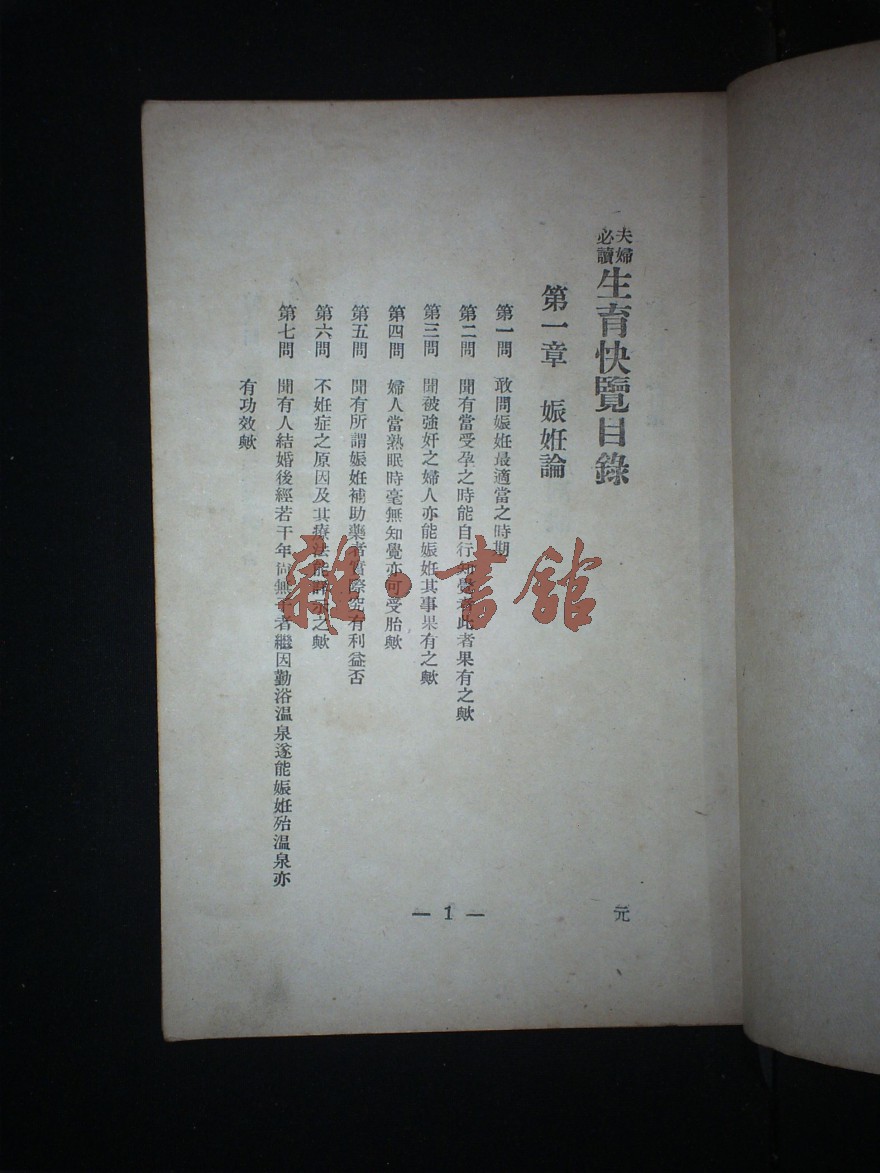 夫婦必讀 生育快覽目錄
第一章 娠姙論
第一問 敢問娠姙最適當之時期
第二問 聞有當受孕之時能自行覺此者果有之歟
第三問 聞被強奸之婦人亦能娠姙其事果有之歟
第四問 婦人當熟眠時毫無知覺亦可受胎歟
第五問 聞有所謂娠姙補助藥者實際究有利益否
第六問 不姙症之原因及其療法能之歟
第七問 聞有人結婚後經若干年尚無子者繼因勤浴溫泉遂能娠姙殆溫泉亦
有功效歟
元
— 1 —
雜·書館